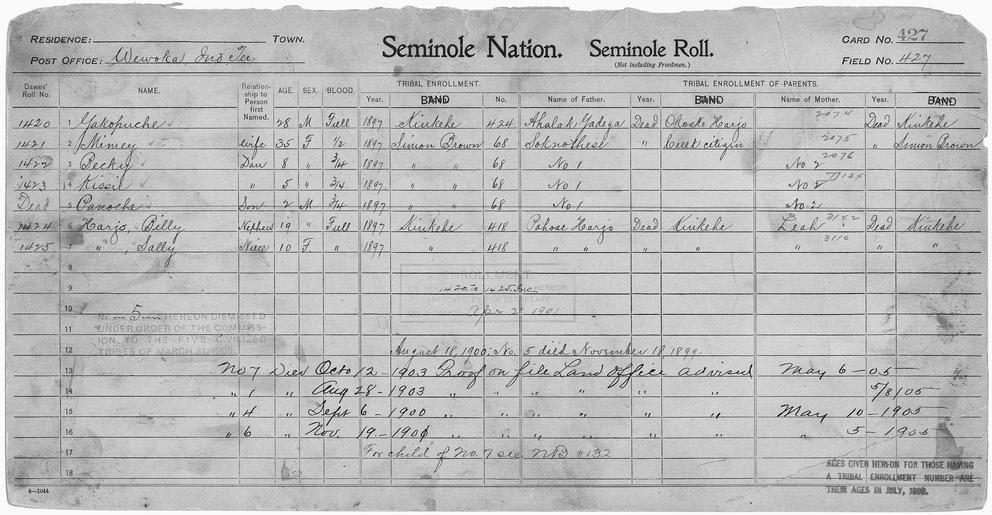 RESIDENCE: TOWN. Seminole Nation. Seminole Roll. CARD NO. 427
POST OFFICE: Wewoka, Ind. Ter. (Not including Freedmen.) FIELD NO. 427
Dawes' Roll No. NAME. Relationship to Person first Named. AGE. SEX. BLOOD. TRIBAL ENROLLMENT. TRIBAL ENROLLMENT OF PARENTS.
Year. BAND No. Name of Father. Year. BAND Name of Mother. Year. BAND
2074
1420 1 Yakopuche 28 M Full 1897 Kinkehe 424 Ahalak Yadega Dead Choske Harjo Dead Kinkehe
1421 2 Mimey Wife 35 F 1/2 1897 Simon Brown 68 Soknothese " Creek citizen 2075 " Simon Brown
1422 3 Becky Dau 8 " 3/4 1897 " " 68 No 1 No 2 2076
1423 4 Kissie " 5 " 3/4 1897 " " 68 No 1 No 2
Dead 5 Panoche Son 2 M 3/4 1897 " " 68 No 1 No 2
1424 6 Harjo, Billy Nephew 19 " Full 1897 Kinkehe 418 Pahose Harjo Dead Kinkehe Leah Dead Kinkehe
1425 7 " , Sally Niece 10 F " 1897 " 418 " " " " " 3110 " "
8
ENROLLMENT
9 1420 to 1425 Inc. HEREON
APPROVED BY THE SECRETARY
10 Apr 2 1901
No. 5 HEREON DISMISSED
UNDER ORDER OF THE COMMISSION
11
TO THE FIVE CIVILIZED
TRIBES OF MARCH 31, 1905.
12 August 18, 1900: No. 5 died November 18 1899.
13 No 7 Died Octo 12 - 1903 Proof on file Land office advised May 6 - 05
14 " 1 " Aug 28 - 1903 " " " " 5/8/05
15 " 4 " Sept 6 - 1900 " " " " May 10 - 1905
16 " 6 " Nov. 19 - 1900 " " " " " 5 - 1905
17 For child of No. 7 see NB #132
18
AGES GIVEN HEREON FOR THOSE HAVING
A TRIBAL ENROLLMENT NUMBER ARE
THEIR AGES IN JULY, 1898.
6—1044